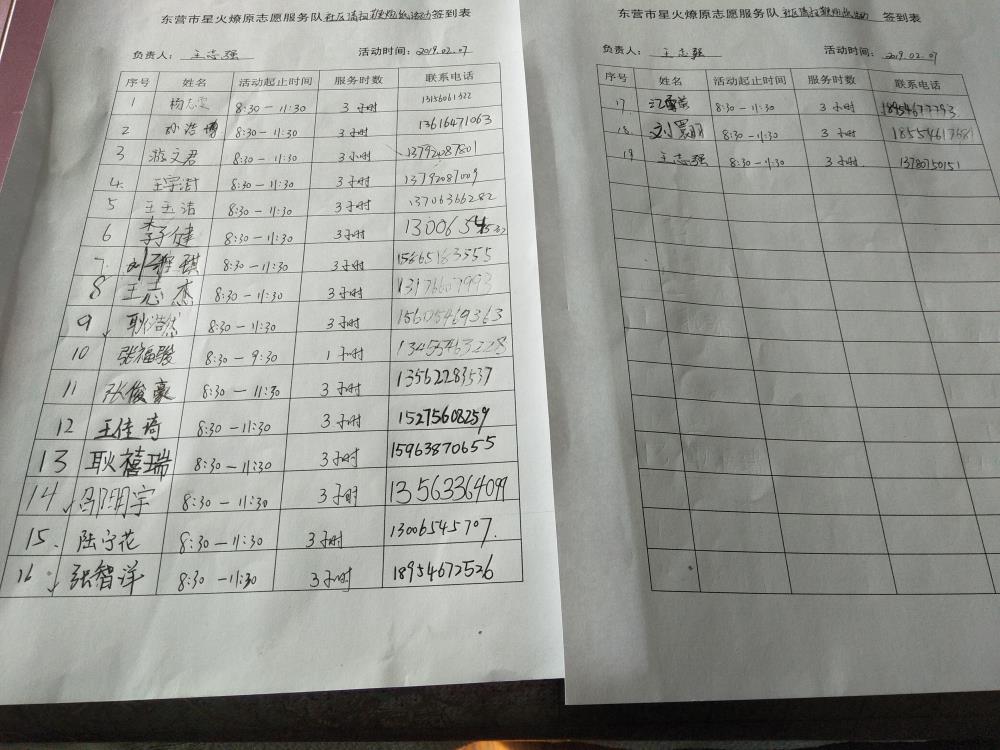 东营市星火燎原志愿服务队社区清扫鞭炮纸活动签到表
负责人: 王志强 活动时间: 2019.02.07
序号 姓名 活动起止时间 服务时数 联系电话
1 8:30-11:30 3小时
2 孙浩博 8:30-11:30 3小时 13616471063
3 游文君 8:30-11:30 3小时 13792087801
4. 8:30-11:30 3小时 13792087009
5 王玉洁 8:30-11:30 3小时 13706366282
6 李子健 8:30-11:30 3小时
7. 8:30-11:30 3小时 15865163555
8 王志杰 8:30-11:30 3小时 13176607993
9 耿浩然 8:30-11:30 3小时 15605469363
10 张福骏 8:30-9:30 1小时 13455463228
11 张俊豪 8:30-11:30 3小时 13562283537
12 王佳琦 8:30-11:30 3小时 15275608259
13 耿禧瑞 8:30-11:30 3小时 15963870655
14 邵明宇 8:30-11:30 3小时 13563364099
15. 陆宁花 8:30-11:30 3小时 13006545707.
16 张智洋 8:30-11:30 3小时 18954672526
东营市星火燎原志愿服务队社区清扫鞭炮纸活动 签到表
负责人: 王志强 活动时间: 2019.02.07
序号 姓名 活动起止时间 服务时数 联系电话
17. 8:30-11:30 3小时 18954677793
18. 8:30-11:30 3小时
19 王志强 8:30-11:30 3小时 13780750151